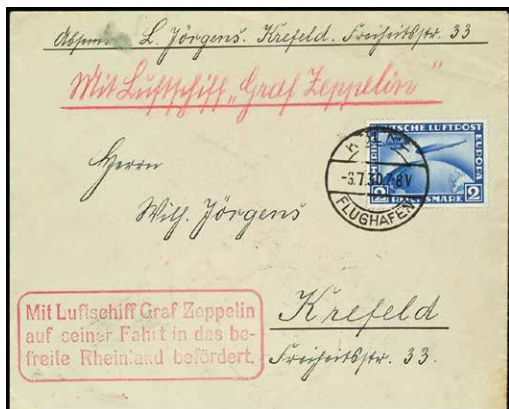 L. Jörgens. Krefeld. Freiheitsstr. 33
Mit Luftschiff „Graf Zeppelin"
DEUTSCHE LUFTPOST
EUROPA
AMERIKA
2 REICHSMARK 2
KÖLN
-3.7.30.7-8V
FLUGHAFEN
Herrn
Wilh. Jörgens
Krefeld
Freiheitsstr. 33.
Mit Luftschiff Graf Zeppelin
auf seiner Fahrt in das be-
freite Rheinland befördert.